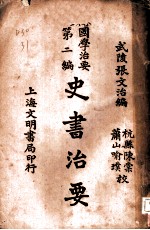 武陵張文治編
杭縣陳棠
蕭山喻璞
校
國學治要
第二編
史書治要
上海文明書局印行